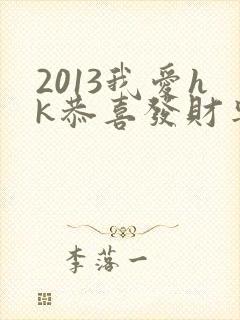 2013我愛h
k恭喜發財
李落一